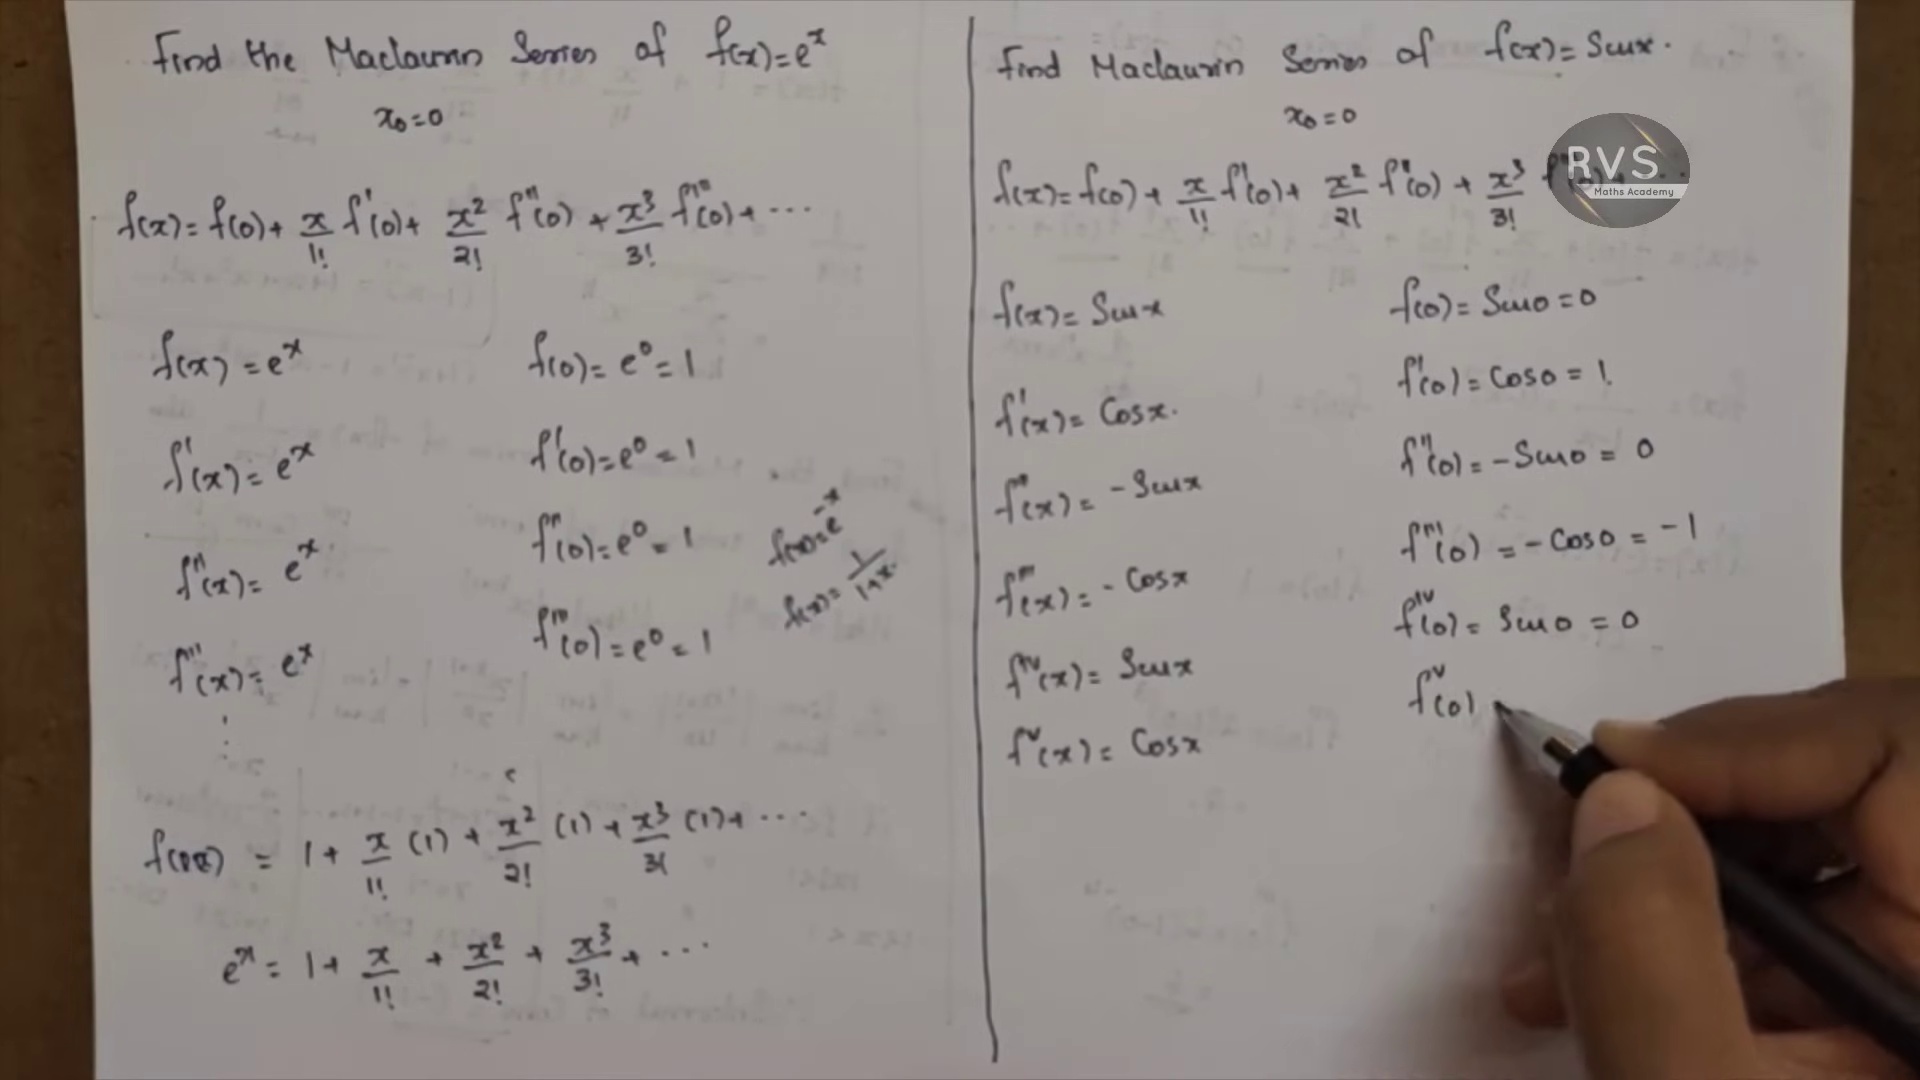 Find the Maclaurin Series of f(x)=eˣ
x₀=0
f(x)= f(0)+ x/1! f'(0)+ x²/2! f''(0) + x³/3! f'''(0)+ ...
f(x) = eˣ
f(0)= e⁰= 1
f'(x)= eˣ
f'(0)=e⁰=1
f''(x)= eˣ
f''(0)=e⁰=1
f'''(x)= eˣ
f'''(0)=e⁰=1
f(x)=e⁻ˣ
f(x)= 1/1+x
= 1+ x/1! (1) + x²/2! (1) + x³/3! (1)+ ...
eˣ= 1+ x/1! + x²/2! + x³/3! + ...
Find Maclaurin Series of f(x)= Sinx.
x₀=0
f(x)= f(0) + x/1! f'(0)+ x²/2! f''(0) + x³/3!
RVS
Maths Academy
f(x)= Sinx
f(0)= Sin0=0
f'(x)= Cosx.
f'(0)= Cos0=1.
f''(x)= -Sinx
f''(0)= -Sin0= 0
f'''(x)= -Cosx
f'''(0) = -Cos0 = -1
fⁱᵛ(x)= Sinx
fⁱᵛ(0)= Sin0 = 0
fᵛ(x)= Cosx
fᵛ(0)